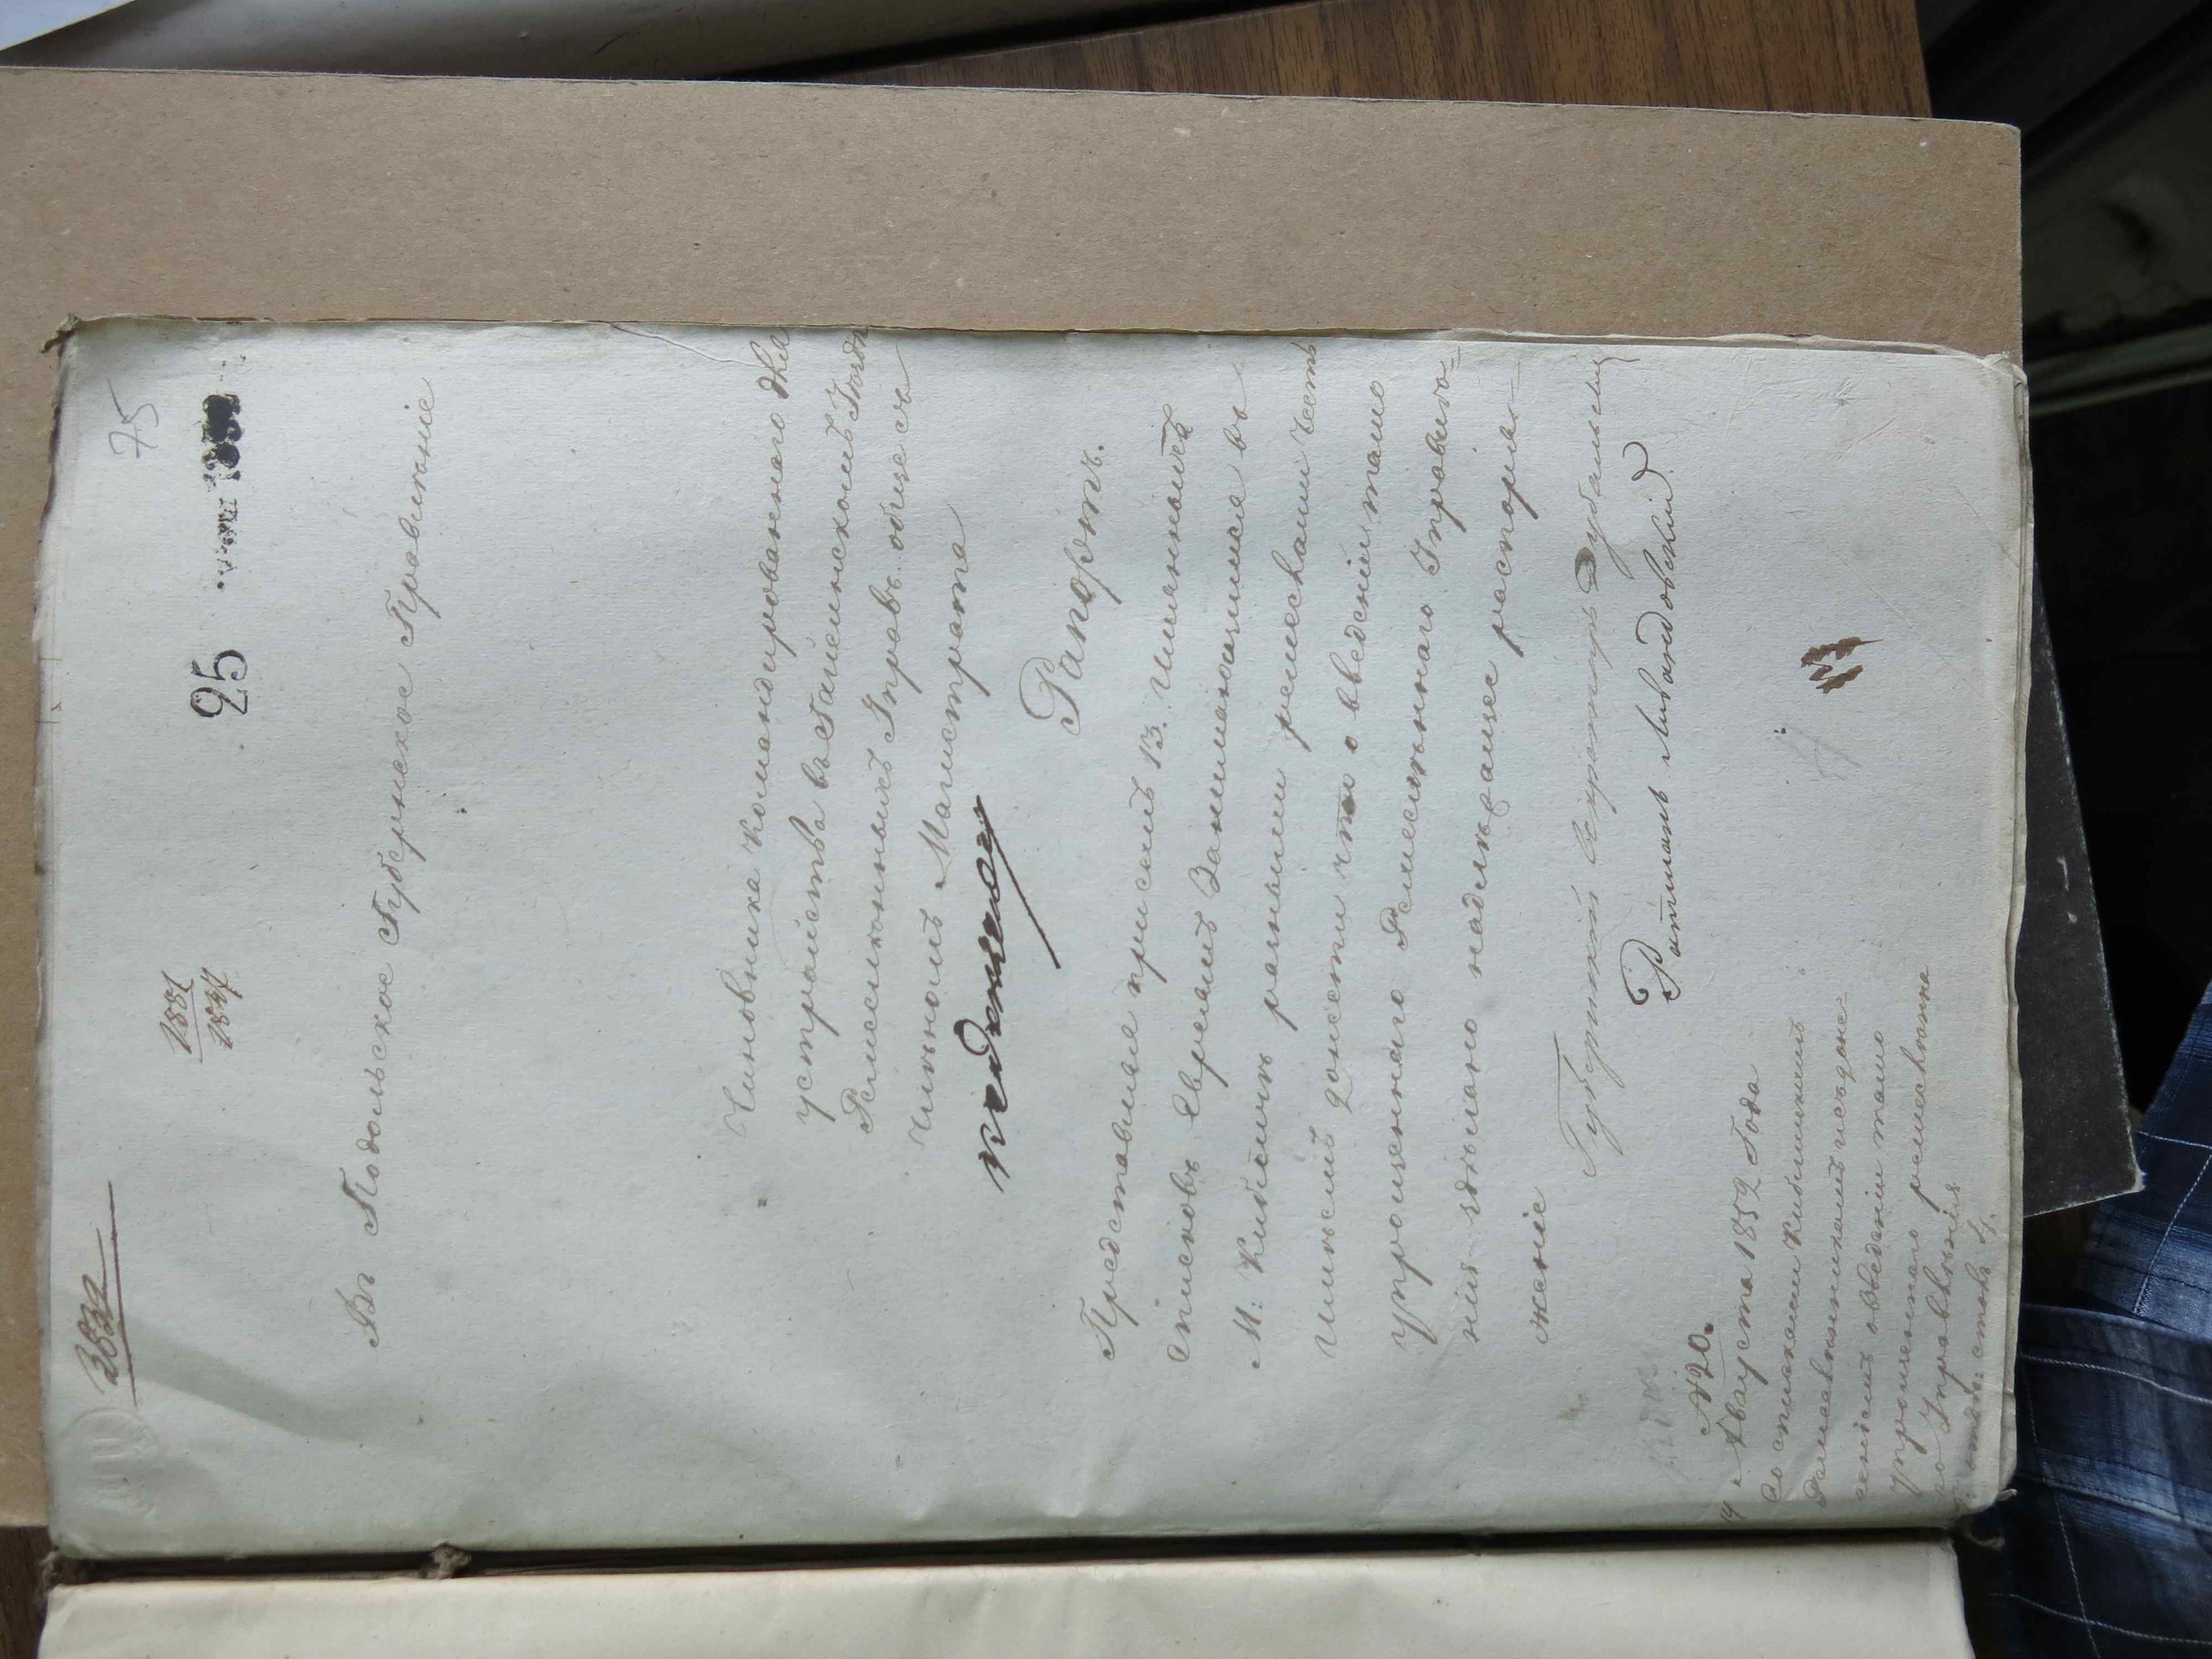 3032
75
1881
25
Въ Подольское Губернское Правленіе
Чиновника командированного для
устройства въ Гайсинскомъ
Ремесленныхъ Управъ обще съ
Членомъ Магистрата
Рапортъ.
Представляя при семъ 13.
списковъ Евреямъ Занимающимся въ
М: Кибличъ разными ремеслами честь
имѣемъ донести что о введеніи тамо
упрощеннаго Ремесленнаго Управле=
нія сдѣлано надлежащее распоря=
женіе
Губернскій Секретарь
Ратманъ Левандовскій
N 20.
14 Августа 1852 Года
Со списками Кибличскимъ
Ремесленникамъ и съ доне-
сеніемъ о введеніи тамо
упрощеннаго ремесленна
го Управленія